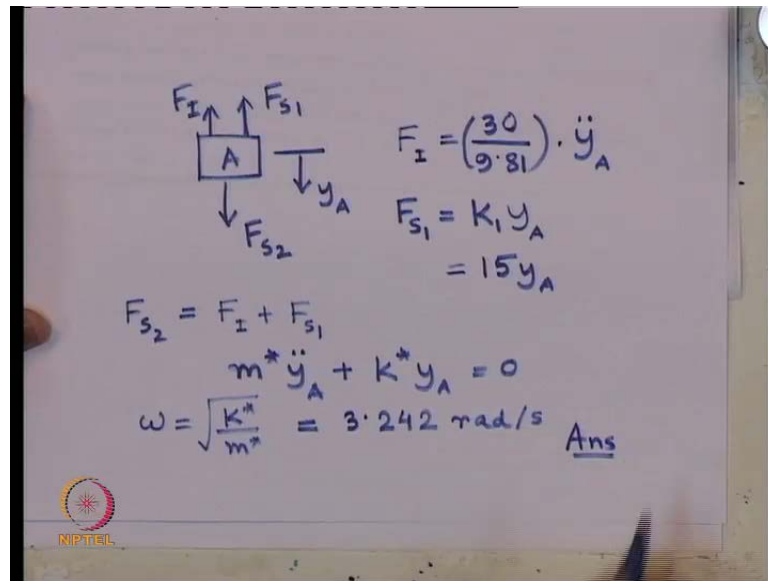 F_I F_S1
A
y_A
F_S2
F_I = (30/9.81) · ÿ_A
F_S1 = K_1 y_A
= 15 y_A
F_S2 = F_I + F_S1
m* ÿ_A + K* y_A = 0
ω = √(K*/m*) = 3.242 rad/s Ans
NPTEL